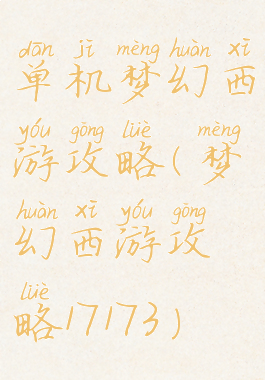 dān jī mèng huàn xī
单机梦幻西
yóu gōng lüè mèng
游攻略(梦
huàn xī yóu gōng
幻西游攻
lüè
略17173)